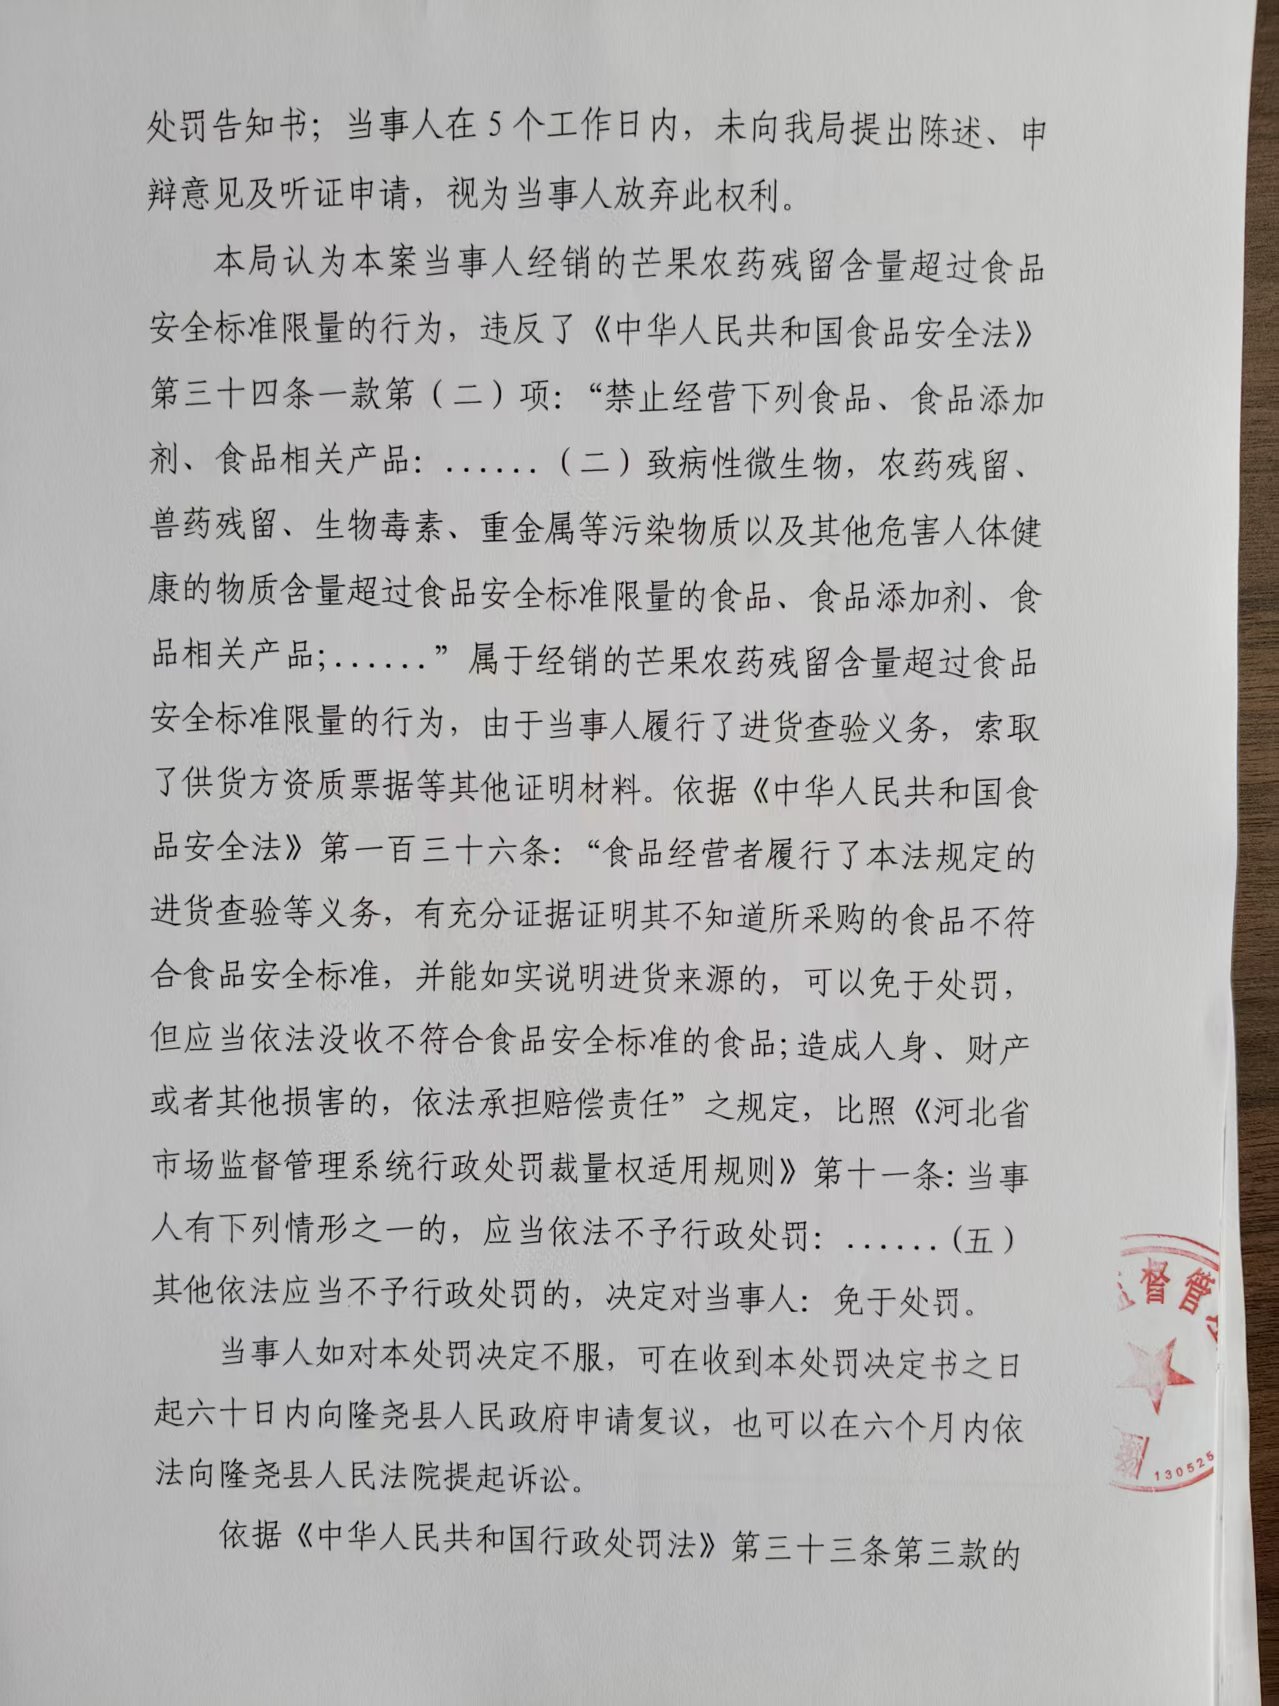 处罚告知书；当事人在 5 个工作日内，未向我局提出陈述、申
辩意见及听证申请，视为当事人放弃此权利。
本局认为本案当事人经销的芒果农药残留含量超过食品
安全标准限量的行为，违反了《中华人民共和国食品安全法》
第三十四条一款第（二）项：“禁止经营下列食品、食品添加
剂、食品相关产品：......（二）致病性微生物，农药残留、
兽药残留、生物毒素、重金属等污染物质以及其他危害人体健
康的物质含量超过食品安全标准限量的食品、食品添加剂、食
品相关产品；......”属于经销的芒果农药残留含量超过食品
安全标准限量的行为，由于当事人履行了进货查验义务，索取
了供货方资质票据等其他证明材料。依据《中华人民共和国食
品安全法》第一百三十六条：“食品经营者履行了本法规定的
进货查验等义务，有充分证据证明其不知道所采购的食品不符
合食品安全标准，并能如实说明进货来源的，可以免于处罚，
但应当依法没收不符合食品安全标准的食品；造成人身、财产
或者其他损害的，依法承担赔偿责任”之规定，比照《河北省
市场监督管理系统行政处罚裁量权适用规则》第十一条：当事
人有下列情形之一的，应当依法不予行政处罚：......（五）
其他依法应当不予行政处罚的，决定对当事人：免于处罚。
当事人如对本处罚决定不服，可在收到本处罚决定书之日
起六十日内向隆尧县人民政府申请复议，也可以在六个月内依
法向隆尧县人民法院提起诉讼。
依据《中华人民共和国行政处罚法》第三十三条第三款的
督管
130525